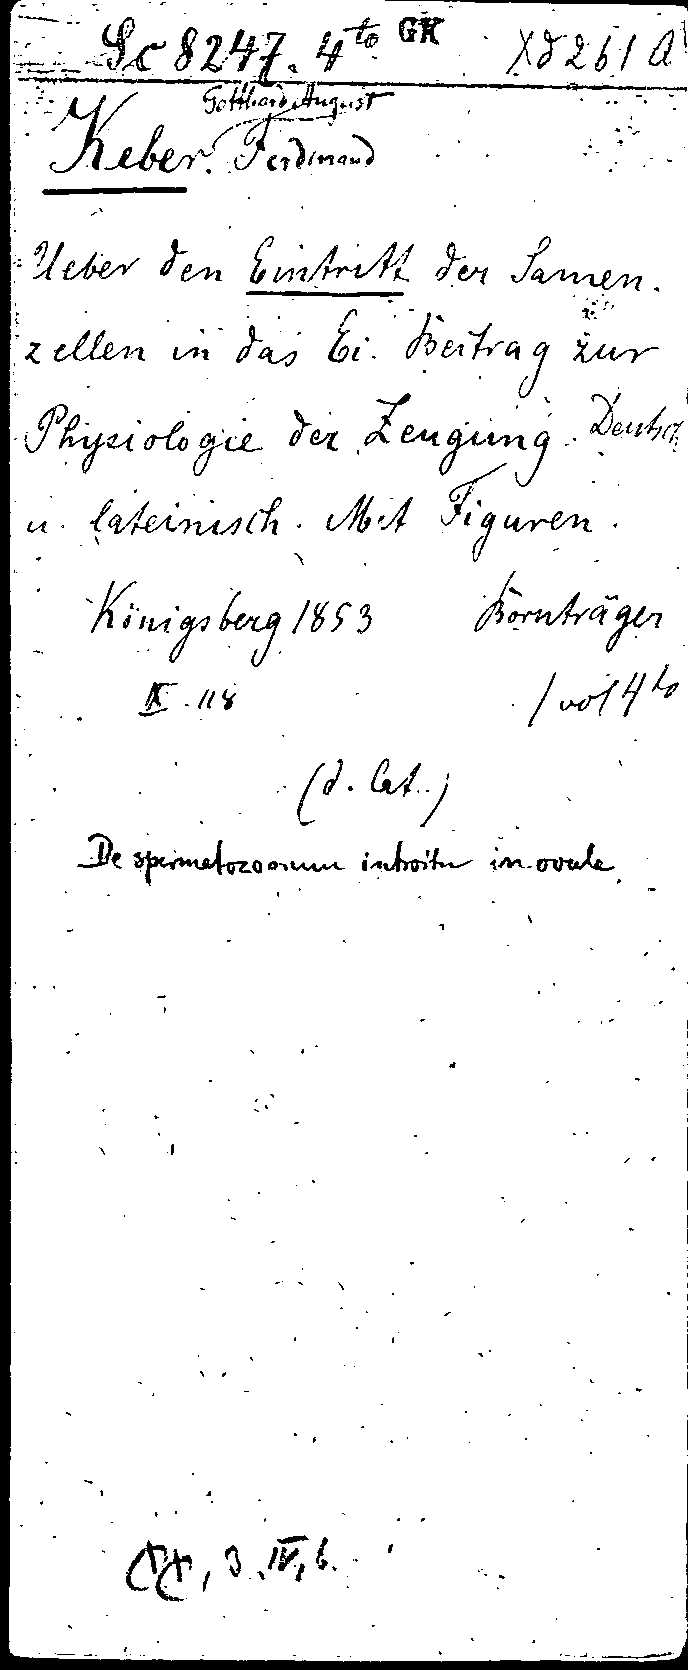 Sc 8247. 4to GK Xd 261 A
Gotthard August
Keber. Ferdinand
Ueber den Eintritt der Samen-
zellen in das Ei. Beitrag zur
Physiologie der Zeugung. Deutsch
u. lateinisch. Mit Figuren.
Königsberg 1853 Bornträger
IX. 118 1 vol 4to
(d. Cat.)
De spermatozoorum introitu in ovula.
3. IV, b.